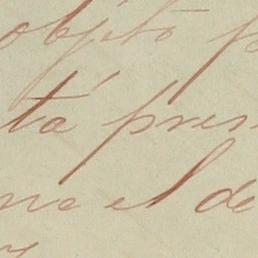 objeto p
tá pres
ne el de